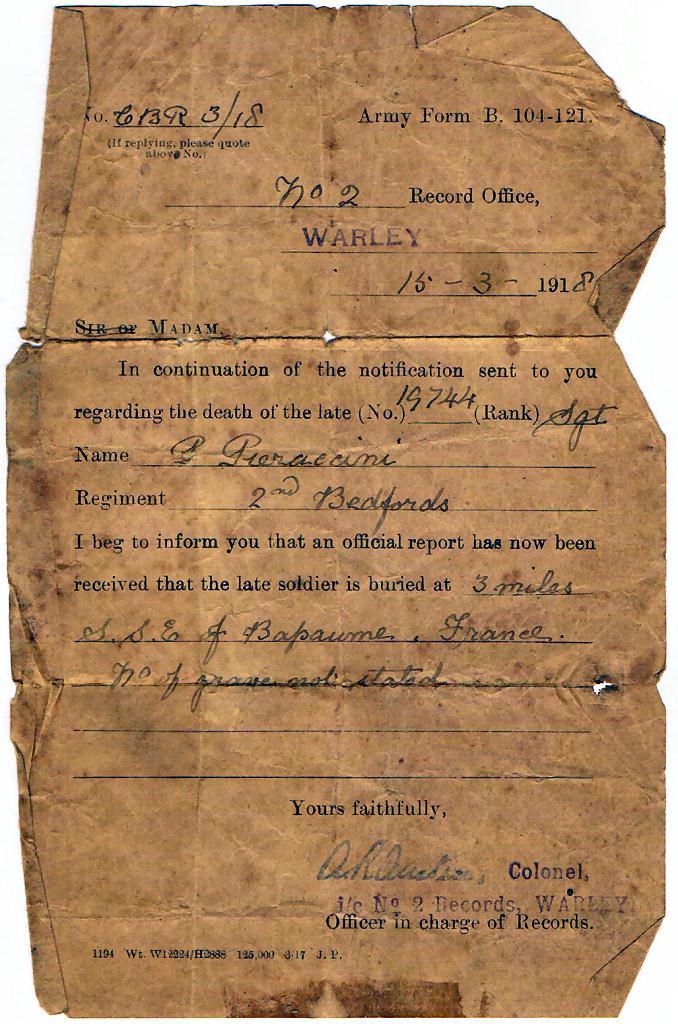 No. CBR 3/18 Army Form B. 104-121.
(If replying, please quote
above No.)
No 2 Record Office,
WARLEY
15 - 3 - 1918
SIR or MADAM,
In continuation of the notification sent to you
regarding the death of the late (No.) 19744 (Rank) Sgt
Name P Pieraccini
Regiment 2nd Bedfords
I beg to inform you that an official report has now been
received that the late soldier is buried at 3 miles
S.S.E of Bapaume, France.
No of grave not stated
Yours faithfully,
Colonel,
i/c No 2 Records, WARLEY.
Officer in charge of Records.
1194 Wt. W12224/H2888 125,000 3/17 J. P.